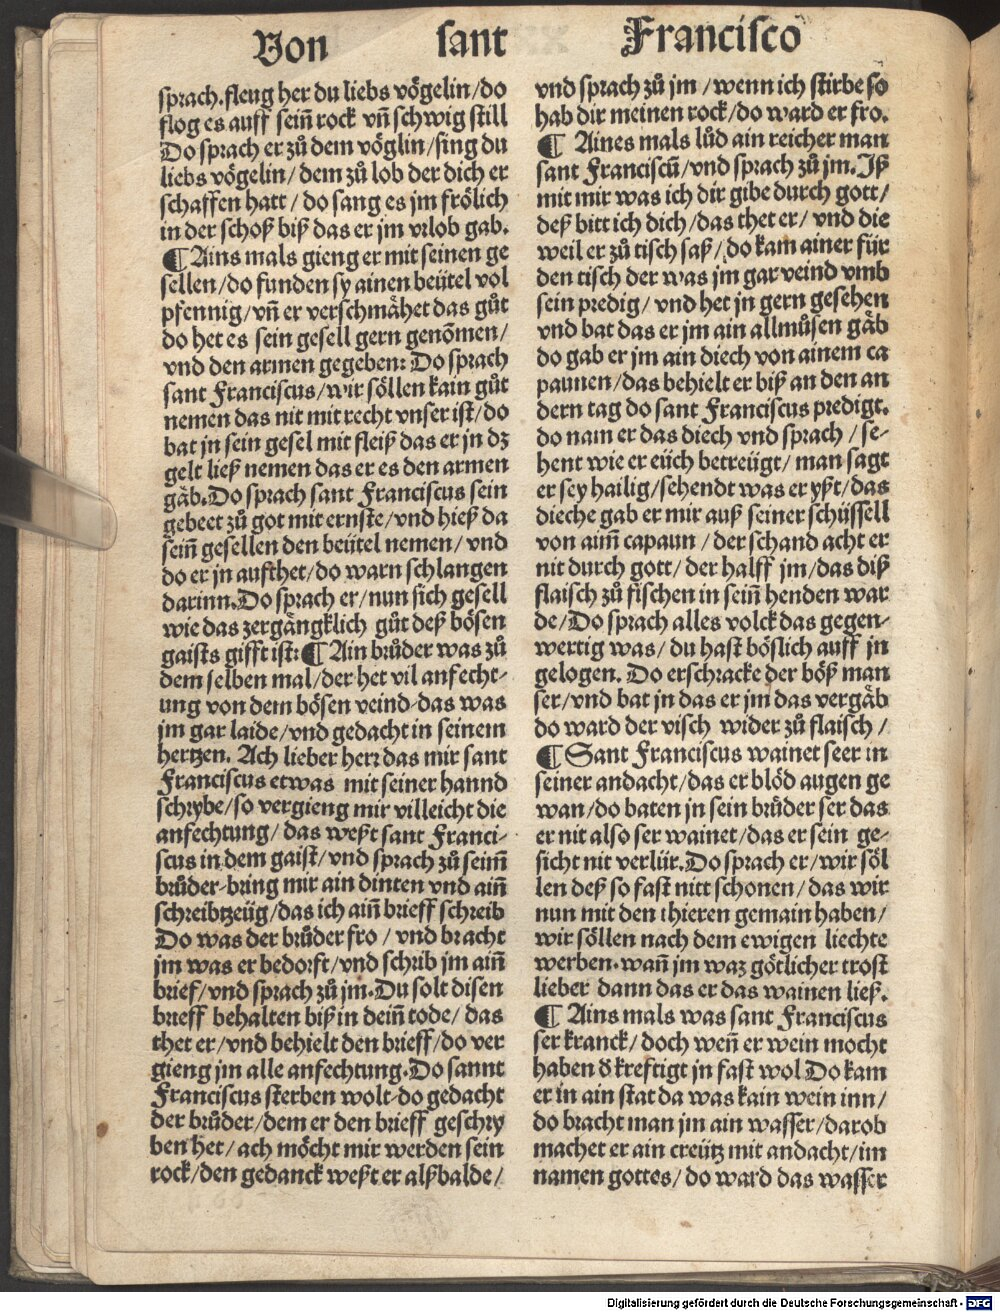 Von sant Francisco
sprach. fleug her du liebs vögelin/do
flog es auff sein̄ rock vn̄ schwig still
Do sprach er zů dem vöglin/sing du
liebs vögelin/ dem zů lob der dich er
schaffen hatt/ do sang es jm frölich
in der schoß biß das er jm vrlob gab.
¶ Ains mals gieng er mit seinen ge
sellen/do funden sy ainen beütel vol
pfennig/vn̄ er verschmähet das gůt
do het es sein gesell gern genōmen/
vnd den armen gegeben: Do sprach
sant Franciscus/wir söllen kain gůt
nemen das nit mit recht vnser ist/do
bat jn sein gesel mit fleiß das er jn dz
gelt ließ nemen das er es den armen
gäb. Do sprach sant Franciscus sein
gebeet zů got mit ernste/vnd hieß da
sein̄ gesellen den beütel nemen/ vnd
do er jn aufthet/do warn schlangen
darinn. Do sprach er/nun sich gesell
wie das zergängklich gůt deß bösen
gaists gifft ist: ¶ Ain brůder was zů
dem selben mal/der het vil anfecht-
ung von dem bösen veind-das was
jm gar laide/vnd gedacht in seinem
hertzen. Ach lieber herr das mir sant
Franciscus etwas mit seiner hannd
schrybe/so vergieng mir villeicht die
anfechtung/ das weßt sant Franci-
scus in dem gaist/vnd sprach zů seim̄
brůder-bring mir ain dinten vnd ain̄
schreibtzeüg/das ich ain̄ brieff schreib
Do was der brůder fro/ vnd bracht
jm was er bedorft/vnd schrib jm ain̄
brief/vnd sprach zů jm. Du solt disen
brieff behalten biß in dein̄ tode/ das
thet er/vnd behielt den brieff/do ver
gieng jm alle anfechtung. Do sannt
Franciscus sterben wolt-do gedacht
der brůder/dem er den brieff geschry
ben het/ach möcht mir werden sein
rock/den gedanck weßt er alßbalde/
vnd sprach zů jm/wenn ich stirbe so
hab dir meinen rock/do ward er fro.
¶ Aines mals lůd ain reicher man
sant Franciscū/vnd sprach zů jm. Iß
mit mir was ich dir gibe durch gott/
deß bitt ich dich/das thet er/ vnd die
weil er zů tisch saß/do kam ainer für
den tisch der was jm gar veind vmb
sein predig/ vnd het jn gern gesehen
vnd bat das er jm ain allmůsen gäb
do gab er jm ain diech von ainem ca
paunen/das behielt er biß an den an
dern tag do sant Franciscus predigt.
do nam er das diech vnd sprach/ se-
hent wie er eüch betreügt/ man sagt
er sey hailig/sehendt was er yßt/das
dieche gab er mir auß seiner schüssell
von aim̄ capaun/der schand acht er
nit durch gott/ der halff jm/das diß
flaisch zů fischen in sein̄ henden war
de/Do sprach alles volck das gegen-
wertig was/du hast böslich auff jn
gelogen. Do erschracke der böß man
ser/vnd bat jn das er jm das vergäb
do ward der visch wider zů flaisch/
¶ Sant Franciscus wainet seer in
seiner andacht/das er blöd augen ge
wan/do baten jn sein brůder ser das
er nit also ser wainet/das er sein ge-
sicht nit verlür. Do sprach er/wir söl
len deß so fast nitt schonen/das wir
nun mit den thieren gemain haben/
wir söllen nach dem ewigen liechte
werben. wan̄ jm waz götlicher trost
lieber dann das er das wainen ließ.
¶ Ains mals was sant Franciscus
ser kranck/doch wen̄ er wein mocht
haben d̕ kreftigt jn fast wol Do kam
er in ain stat da was kain wein inn/
do bracht man jm ain wasser/darob
machet er ain creütz mit andacht/im
namen gottes/do ward das wasser
Digitalisierung gefördert durch die Deutsche Forschungsgemeinschaft - DFG